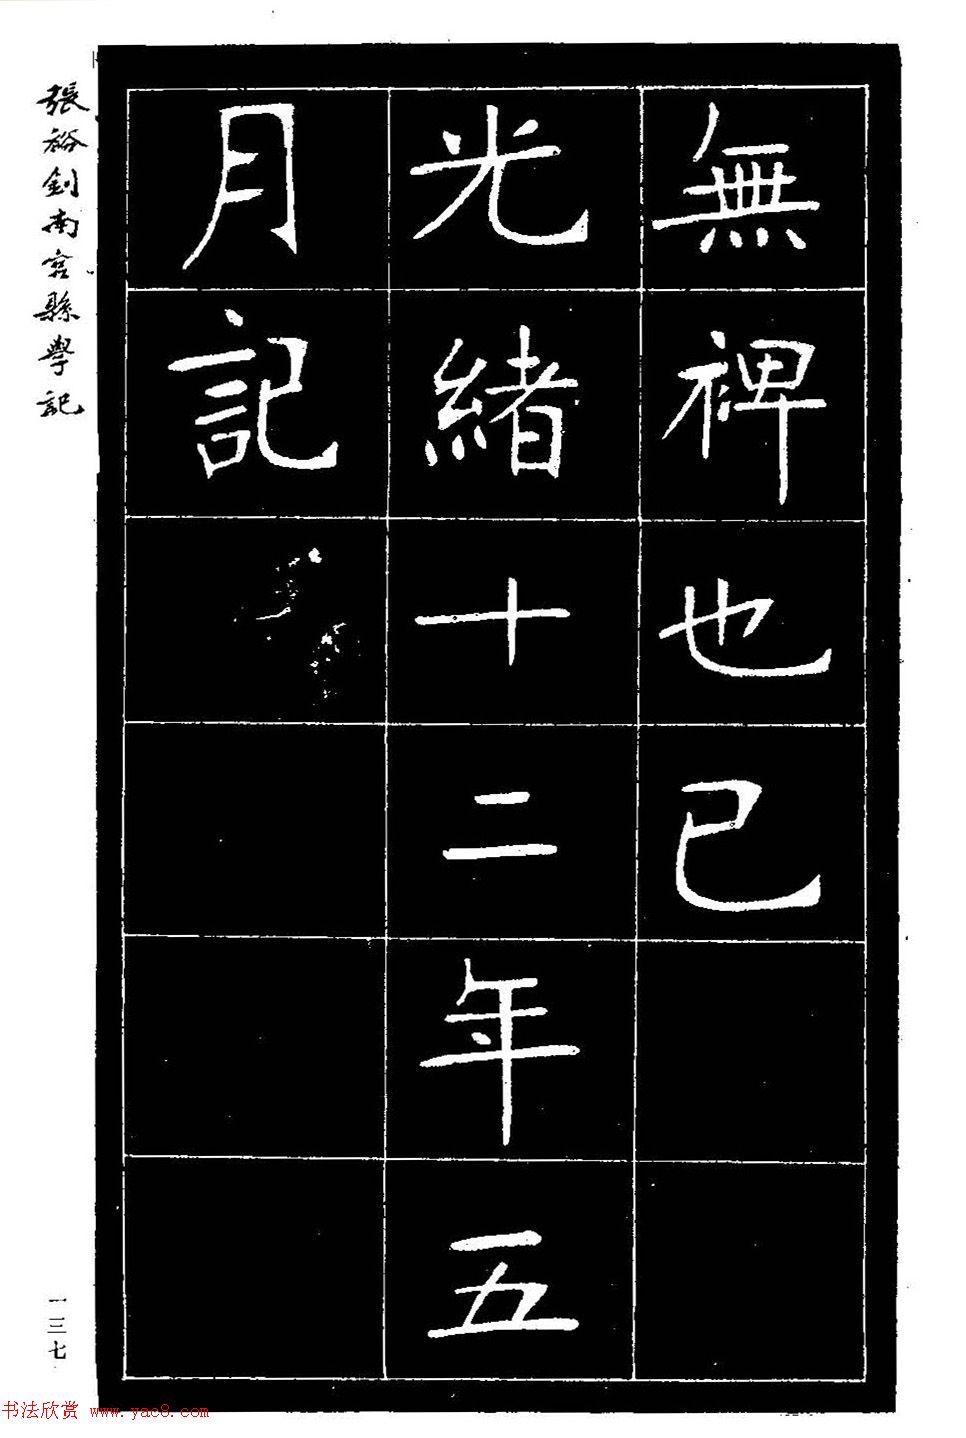 無裨也已
光緒十二年五
月記
張裕釗南宮縣學記
一三七
书法欣赏 www.yac8.com